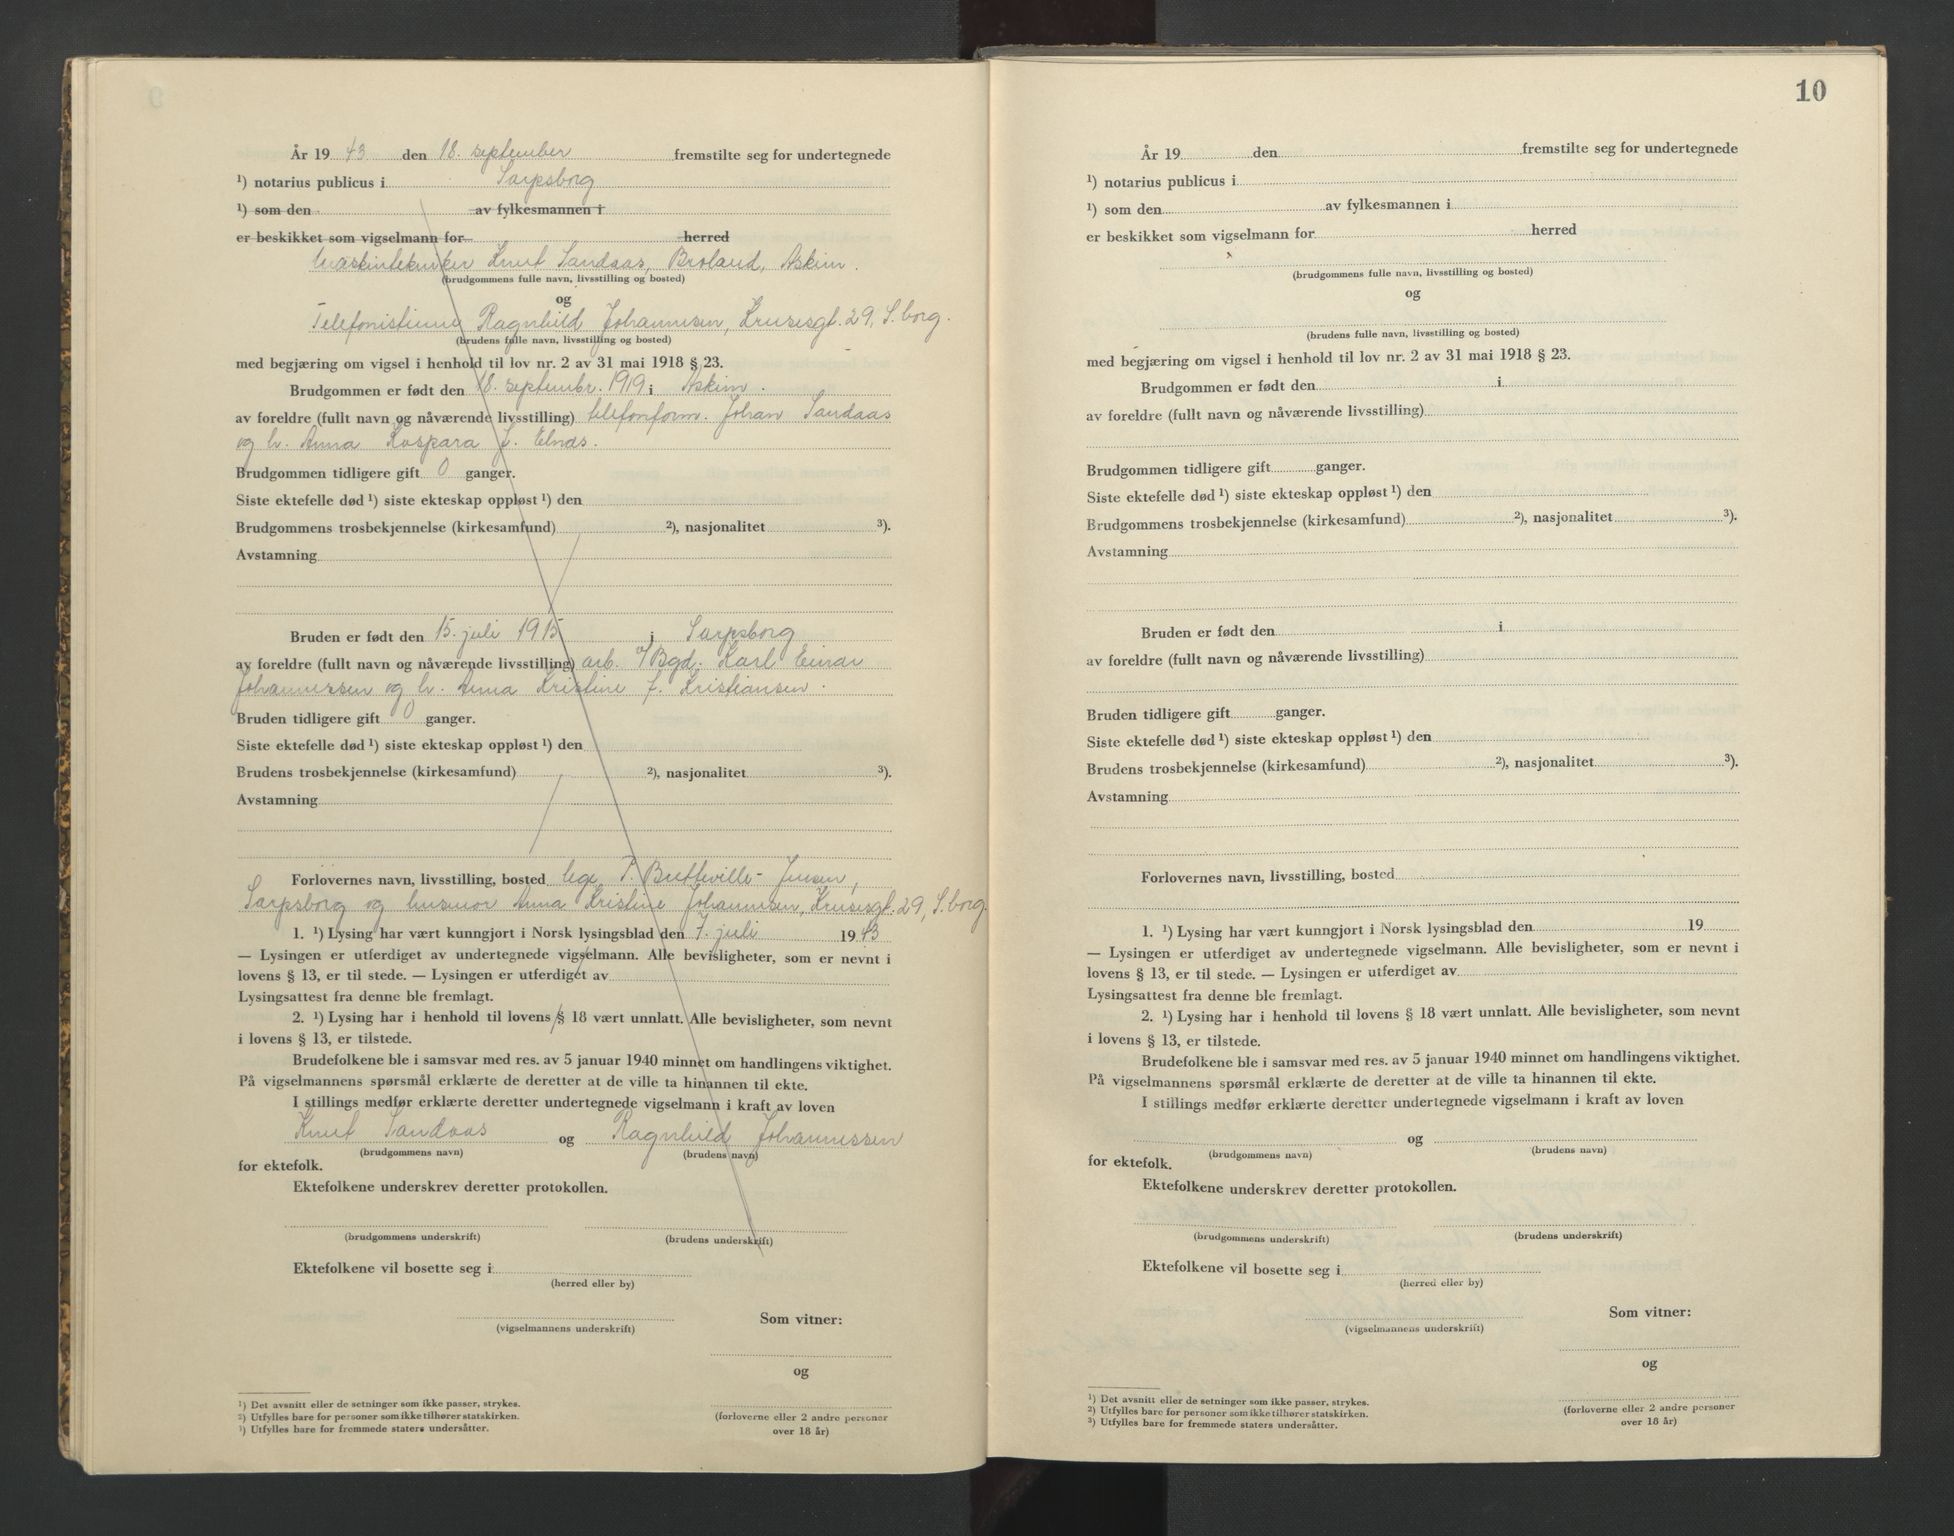 År 19 43 den 18. september fremstilte seg for undertegnede
¹) notarius publicus i Sarpsborg
¹) som den av fylkesmannen i
er beskikket som vigselmann for herred
Maskintekniker Knut Sandaas, Broland, Askim.
(brudgommens fulle navn, livsstilling og bosted)
og
Telefonistinne Ragnhild Johannessen, Krusesgt. 29, S.borg.
(brudens fulle navn, livsstilling og bosted)
med begjæring om vigsel i henhold til lov nr. 2 av 31 mai 1918 § 23.
Brudgommen er født den 18. septembr. 1919 i Askim.
av foreldre (fullt navn og nåværende livsstilling) telefonform. Johan Sandaas
og h. Anna Kaspara f. Elnæs.
Brudgommen tidligere gift 0 ganger.
Siste ektefelle død ¹) siste ekteskap oppløst ¹) den
Brudgommens trosbekjennelse (kirkesamfund) ²), nasjonalitet ³).
Avstamning
Bruden er født den 15. juli 1915 i Sarpsborg
av foreldre (fullt navn og nåværende livsstilling) arb. v/Bgd. Karl Einar
Johannessen og h. Anna Kristine f. Kristiansen.
Bruden tidligere gift 0 ganger.
Siste ektefelle død ¹) siste ekteskap oppløst ¹) den
Brudens trosbekjennelse (kirkesamfund) ²), nasjonalitet ³).
Avstamning
Forlovernes navn, livsstilling, bosted lege P. Jensen,
Sarpsborg og husmor Anna Kristine Johannessen, Krusesgt. 29, S.borg.
1. ¹) Lysing har vært kunngjort i Norsk lysingsblad den 7. juli 1943
— Lysingen er utferdiget av undertegnede vigselmann. Alle bevisligheter, som er nevnt i
lovens § 13, er til stede. — Lysingen er utferdiget av
Lysingsattest fra denne ble fremlagt.
2. ¹) Lysing har i henhold til lovens § 18 vært unnlatt. Alle bevisligheter, som nevnt
i lovens § 13, er tilstede.
Brudefolkene ble i samsvar med res. av 5 januar 1940 minnet om handlingens viktighet.
På vigselmannens spørsmål erklærte de deretter at de ville ta hinannen til ekte.
I stillings medfør erklærte deretter undertegnede vigselmann i kraft av loven
Knut Sandaas og Ragnhild Johannessen
(brudgommens navn) (brudens navn)
for ektefolk.
Ektefolkene underskrev deretter protokollen.
(brudgommens underskrift) (brudens underskrift)
Ektefolkene vil bosette seg i
(herred eller by)
Som vitner:
(vigselmannens underskrift)
og
(forloverne eller 2 andre personer
over 18 år)
¹) Det avsnitt eller de setninger som ikke passer, strykes.
²) Utfylles bare for personer som ikke tilhører statskirken.
³) Utfylles bare for fremmede staters undersåtter.
10
År 19 den fremstilte seg for undertegnede
¹) notarius publicus i
¹) som den av fylkesmannen i
er beskikket som vigselmann for herred
(brudgommens fulle navn, livsstilling og bosted)
og
(brudens fulle navn, livsstilling og bosted)
med begjæring om vigsel i henhold til lov nr. 2 av 31 mai 1918 § 23.
Brudgommen er født den i
av foreldre (fullt navn og nåværende livsstilling)
Brudgommen tidligere gift ganger.
Siste ektefelle død ¹) siste ekteskap oppløst ¹) den
Brudgommens trosbekjennelse (kirkesamfund) ²), nasjonalitet ³).
Avstamning
Bruden er født den i
av foreldre (fullt navn og nåværende livsstilling)
Bruden tidligere gift ganger.
Siste ektefelle død ¹) siste ekteskap oppløst ¹) den
Brudens trosbekjennelse (kirkesamfund) ²), nasjonalitet ³).
Avstamning
Forlovernes navn, livsstilling, bosted
1. ¹) Lysing har vært kunngjort i Norsk lysingsblad den 19
— Lysingen er utferdiget av undertegnede vigselmann. Alle bevisligheter, som er nevnt i
lovens § 13, er til stede. — Lysingen er utferdiget av
Lysingsattest fra denne ble fremlagt.
2. ¹) Lysing har i henhold til lovens § 18 vært unnlatt. Alle bevisligheter, som nevnt
i lovens § 13, er tilstede.
Brudefolkene ble i samsvar med res. av 5 januar 1940 minnet om handlingens viktighet.
På vigselmannens spørsmål erklærte de deretter at de ville ta hinannen til ekte.
I stillings medfør erklærte deretter undertegnede vigselmann i kraft av loven
og
(brudgommens navn) (brudens navn)
for ektefolk.
Ektefolkene underskrev deretter protokollen.
(brudgommens underskrift) (brudens underskrift)
Ektefolkene vil bosette seg i
(herred eller by)
Som vitner:
(vigselmannens underskrift)
og
(forloverne eller 2 andre personer
over 18 år)
¹) Det avsnitt eller de setninger som ikke passer, strykes.
²) Utfylles bare for personer som ikke tilhører statskirken.
³) Utfylles bare for fremmede staters undersåtter.